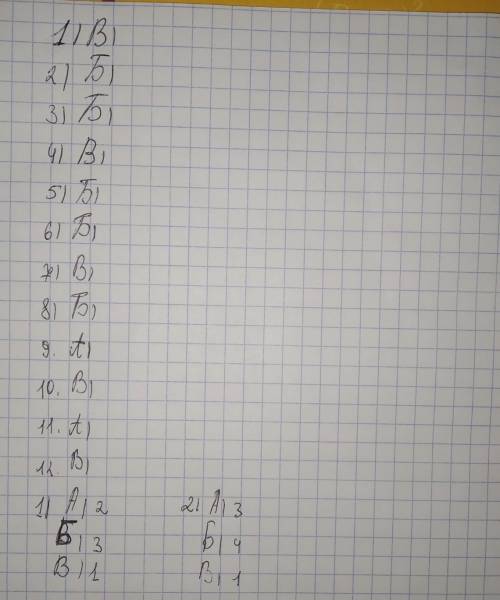 1) В)
2) Б)
3) Б)
4) В)
5) Б)
6) Б)
7) В)
8) Б)
9. А)
10. В)
11. А)
12. В)
1) А) 2 2) А) 3
Б) 3 Б) 4
В) 1 В) 1